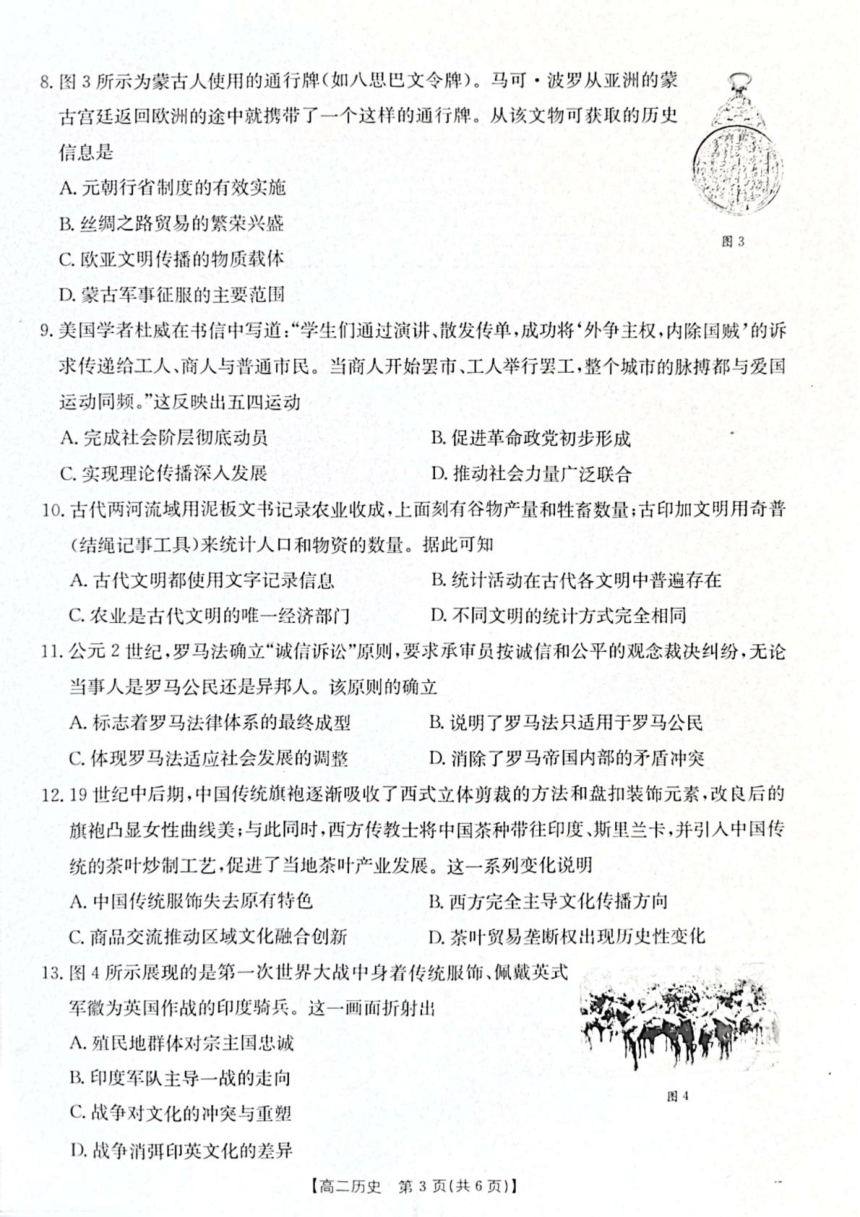 8. 图 3 所示为蒙古人使用的通行牌(如八思巴文令牌)。马可·波罗从亚洲的蒙
古宫廷返回欧洲的途中就携带了一个这样的通行牌。从该文物可获取的历史
信息是
A. 元朝行省制度的有效实施
B. 丝绸之路贸易的繁荣兴盛
C. 欧亚文明传播的物质载体
D. 蒙古军事征服的主要范围
图 3
9. 美国学者杜威在书信中写道:“学生们通过演讲、散发传单,成功将‘外争主权,内除国贼’的诉
求传递给工人、商人与普通市民。当商人开始罢市、工人举行罢工,整个城市的脉搏都与爱国
运动同频。”这反映出五四运动
A. 完成社会阶层彻底动员 B. 促进革命政党初步形成
C. 实现理论传播深入发展 D. 推动社会力量广泛联合
10. 古代两河流域用泥板文书记录农业收成,上面刻有谷物产量和牲畜数量;古印加文明用奇普
(结绳记事工具)来统计人口和物资的数量。据此可知
A. 古代文明都使用文字记录信息 B. 统计活动在古代各文明中普遍存在
C. 农业是古代文明的唯一经济部门 D. 不同文明的统计方式完全相同
11. 公元 2 世纪,罗马法确立“诚信诉讼”原则,要求承审员按诚信和公平的观念裁决纠纷,无论
当事人是罗马公民还是异邦人。该原则的确立
A. 标志着罗马法律体系的最终成型 B. 说明了罗马法只适用于罗马公民
C. 体现罗马法适应社会发展的调整 D. 消除了罗马帝国内部的矛盾冲突
12. 19 世纪中后期,中国传统旗袍逐渐吸收了西式立体剪裁的方法和盘扣装饰元素,改良后的
旗袍凸显女性曲线美;与此同时,西方传教士将中国茶种带往印度、斯里兰卡,并引入中国传
统的茶叶炒制工艺,促进了当地茶叶产业发展。这一系列变化说明
A. 中国传统服饰失去原有特色 B. 西方完全主导文化传播方向
C. 商品交流推动区域文化融合创新 D. 茶叶贸易垄断权出现历史性变化
13. 图 4 所示展现的是第一次世界大战中身着传统服饰、佩戴英式
军徽为英国作战的印度骑兵。这一画面折射出
A. 殖民地群体对宗主国忠诚
B. 印度军队主导一战的走向
C. 战争对文化的冲突与重塑
D. 战争消弭印英文化的差异
图 4
【高二历史 第 3 页(共 6 页)】